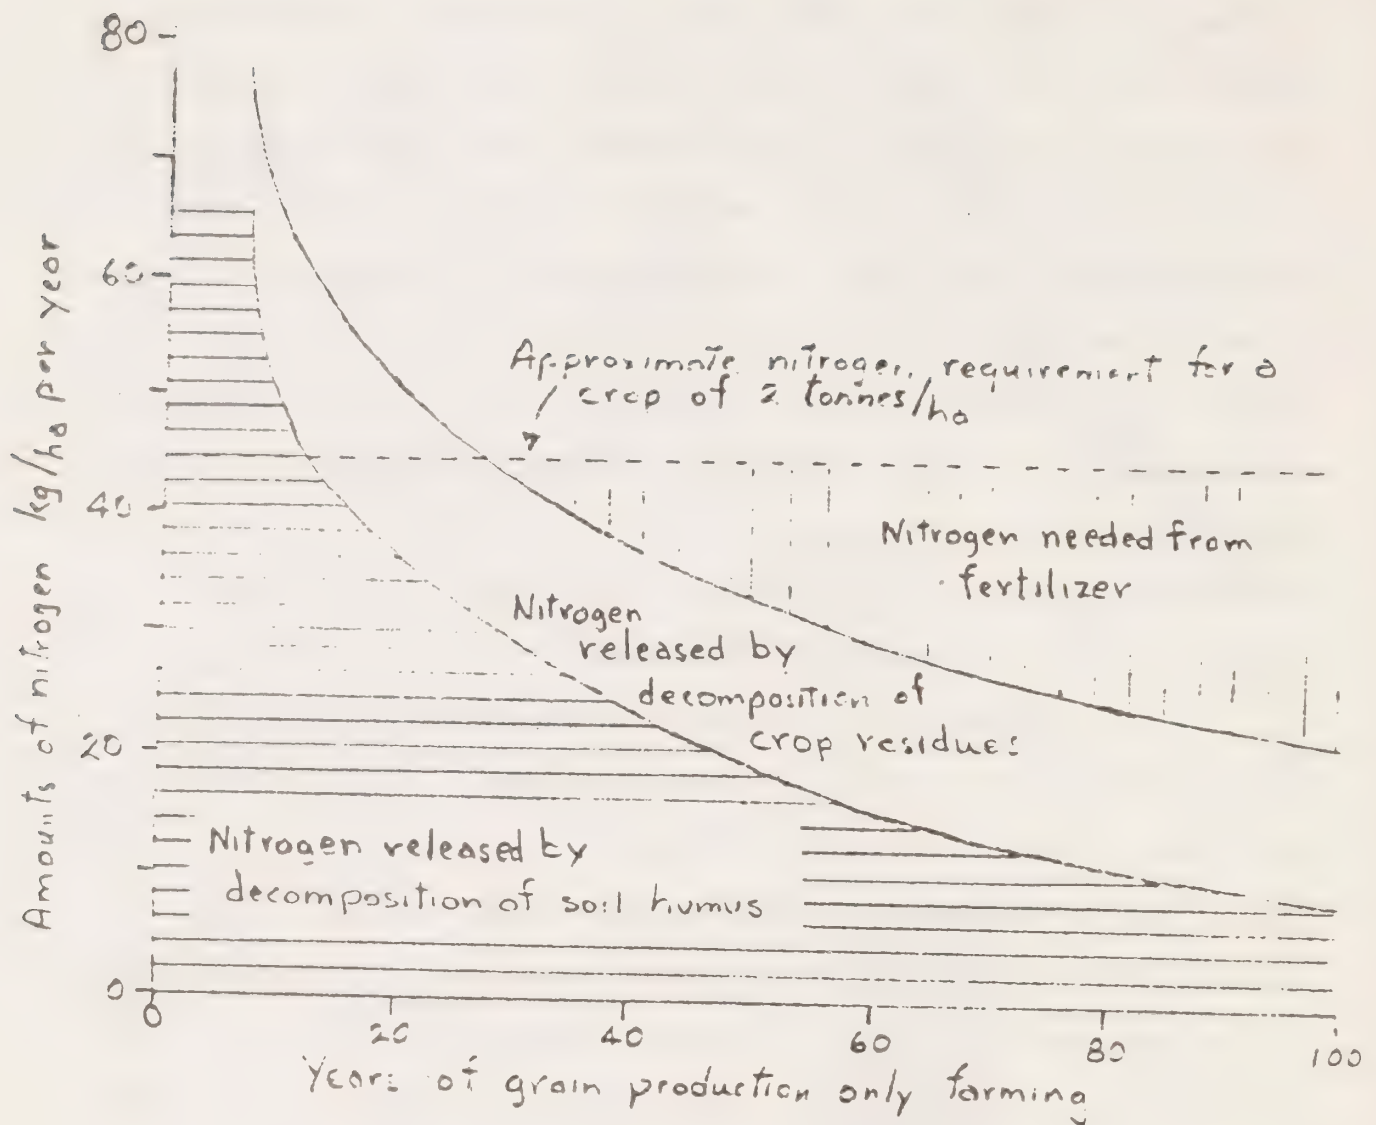 80
60
40
20
0
Amounts of nitrogen kg/ha per year
Approximate nitrogen requirement for a
crop of 2 tonnes/ha
Nitrogen needed from
fertilizer
Nitrogen
released by
decomposition of
crop residues
Nitrogen released by
decomposition of soil humus
0 20 40 60 80 100
Years of grain production only farming